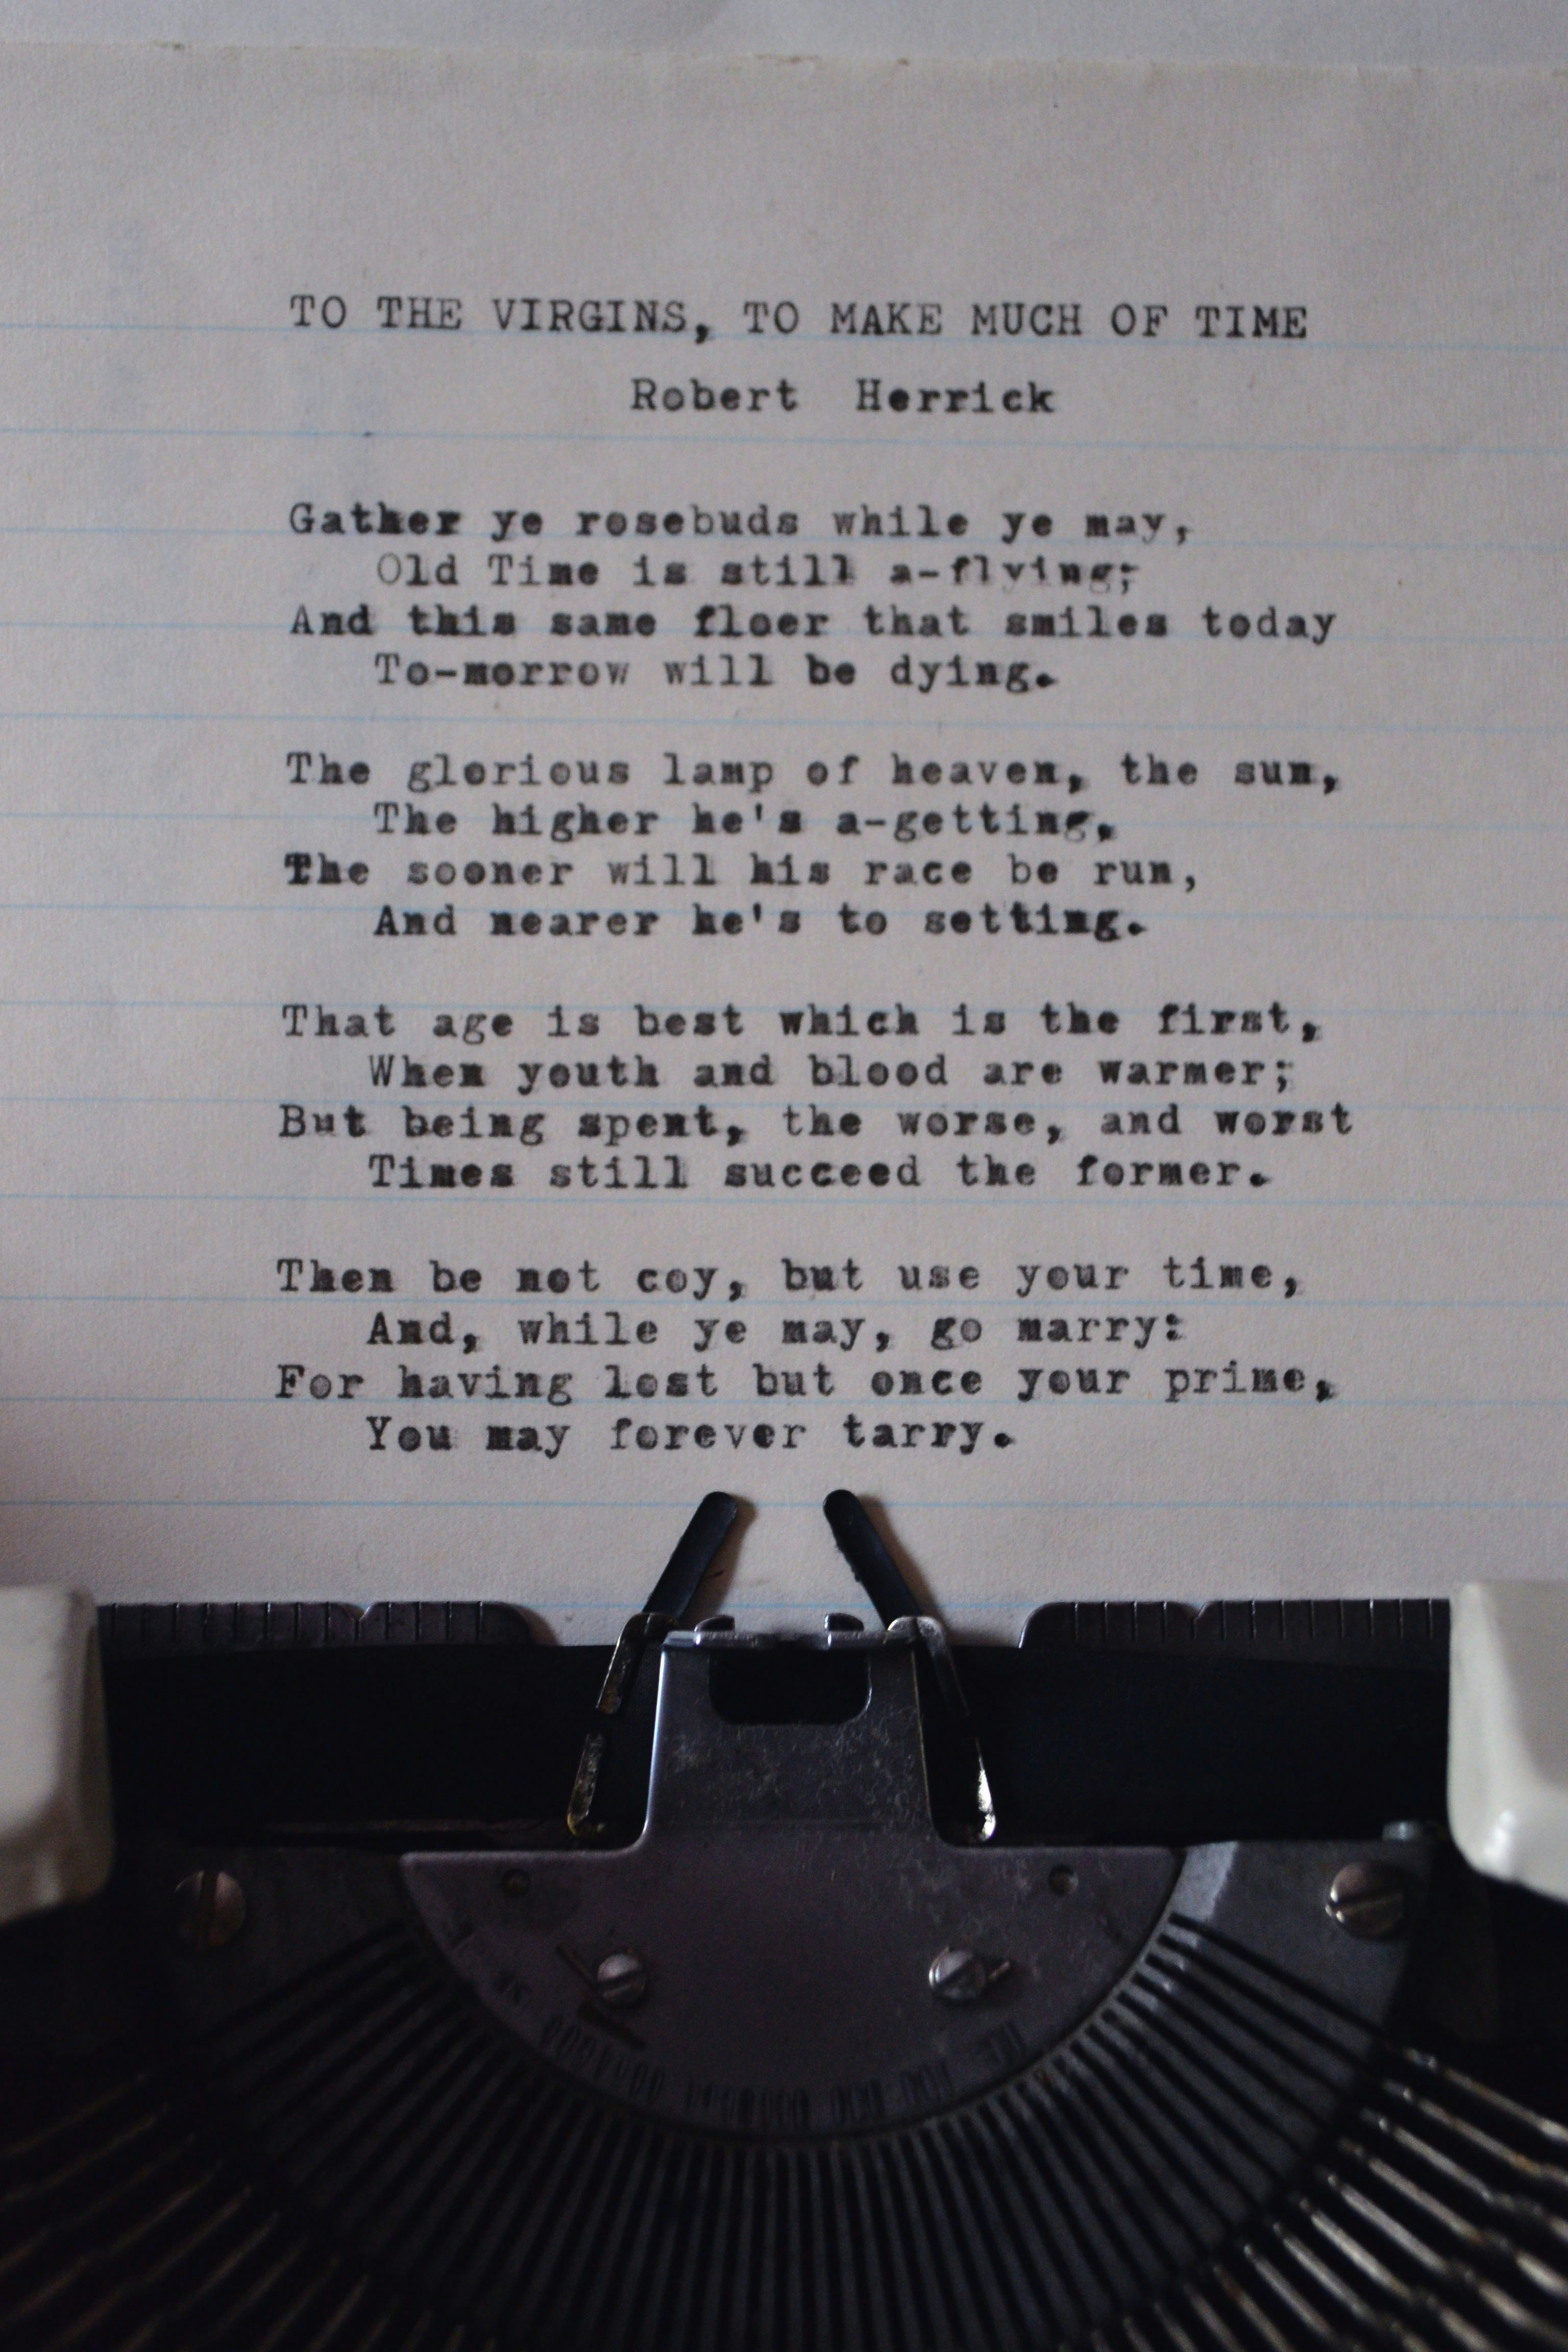 TO THE VIRGINS, TO MAKE MUCH OF TIME
Robert Herrick
Gather ye rosebuds while ye may,
Old Time is still a-flying;
And this same floer that smiles today
To-morrow will be dying.
The glorious lamp of heaven, the sun,
The higher he's a-getting,
The sooner will his race be run,
And nearer he's to setting.
That age is best which is the first,
When youth and blood are warmer;
But being spent, the worse, and worst
Times still succeed the former.
Then be not coy, but use your time,
And, while ye may, go marry:
For having lost but once your prime,
You may forever tarry.